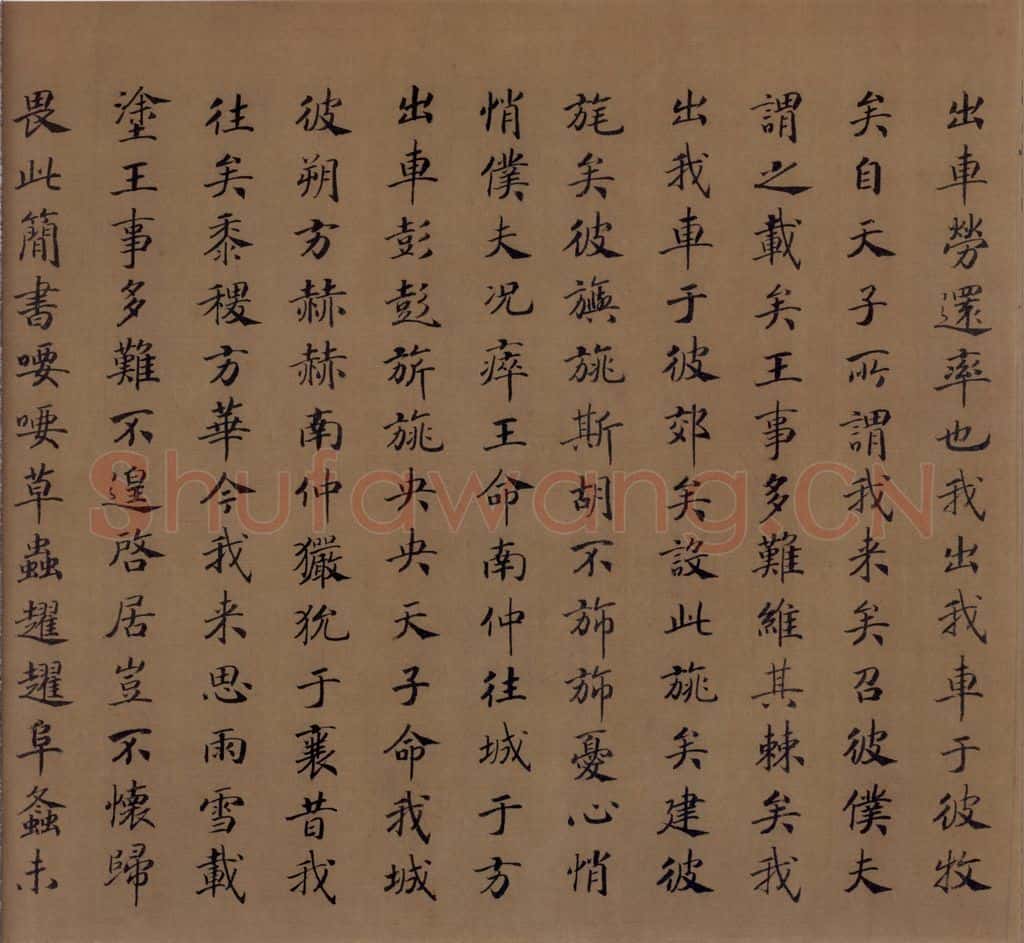 出車勞還率也我出我車于彼牧
矣自天子所謂我来矣召彼僕夫
謂之載矣王事多難維其棘矣我
出我車于彼郊矣設此旐矣建彼
旄矣彼旟旐斯胡不旆旆憂心悄
悄僕夫况瘁王命南仲往城于方
出車彭彭旂旐央央天子命我城
彼朔方赫赫南仲玁狁于襄昔我
往矣黍稷方華今我来思雨雪載
塗王事多難不遑啓居豈不懷歸
畏此簡書喓喓草蟲趯趯阜螽未
Shufawang.CN